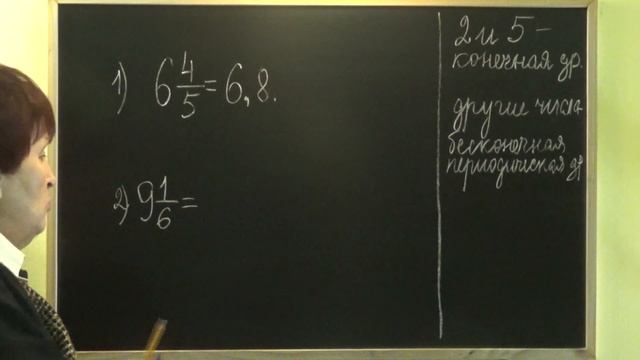 1) 6 4/5 = 6,8.
2) 9 1/6 =
2 и 5 –
конечная др.
другие числа
бесконечная
периодическая др